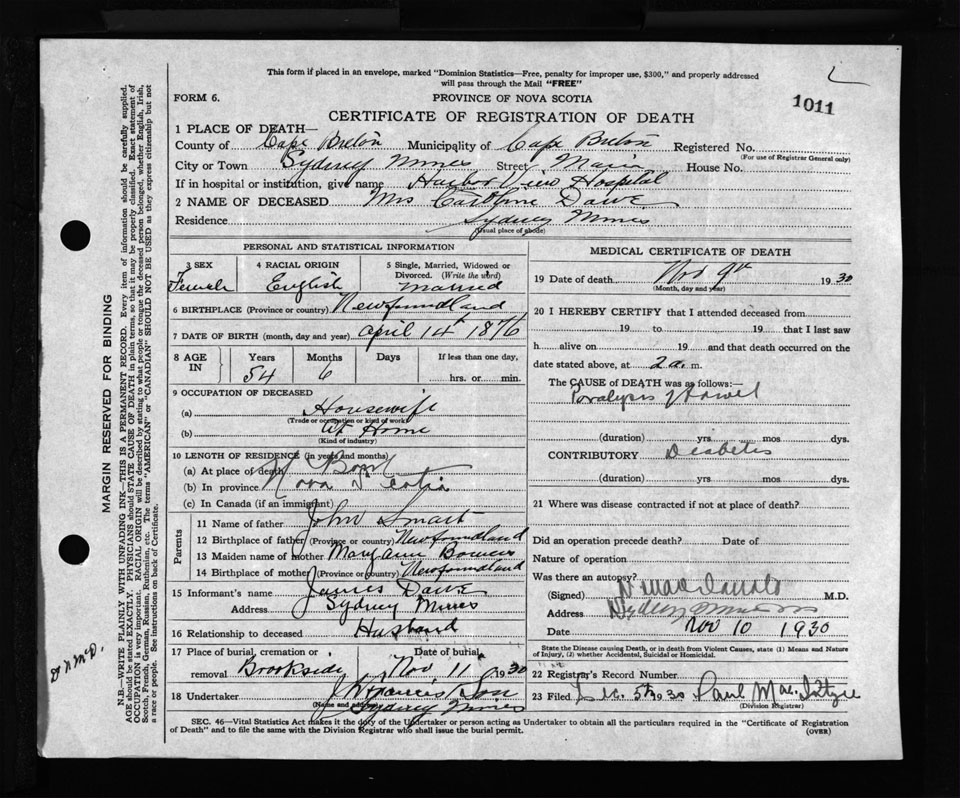 This form if placed in an envelope, marked "Dominion Statistics—Free, penalty for improper use, $300," and properly addressed
will pass through the Mail "FREE"
1011
FORM 6.
PROVINCE OF NOVA SCOTIA
CERTIFICATE OF REGISTRATION OF DEATH
1 PLACE OF DEATH—
County of Cape Breton Municipality of Cape Breton Registered No.
(For use of Registrar General only)
City or Town Sydney Mines Street Main House No.
If in hospital or institution, give name Harbor View Hospital
2 NAME OF DECEASED Mrs Caroline Dawe
Residence Sydney Mines
(Usual place of abode)
PERSONAL AND STATISTICAL INFORMATION
3 SEX 4 RACIAL ORIGIN 5 Single, Married, Widowed or
Divorced. (Write the word)
Female English Married
6 BIRTHPLACE (Province or country) Newfoundland
7 DATE OF BIRTH (month, day and year) April 14 1876
8 AGE IN Years Months Days If less than one day,
54 6 hrs. or min.
9 OCCUPATION OF DECEASED
(a) Housewife
(Trade or occupation or kind of work)
(b) At Home
(Kind of industry)
10 LENGTH OF RESIDENCE (in years and months)
(a) At place of death
(b) In province Nova Scotia
(c) In Canada (if an immigrant)
Parents
11 Name of father John Smart
12 Birthplace of father (Province or country) Newfoundland
13 Maiden name of mother Mary Ann
14 Birthplace of mother (Province or country) Newfoundland
15 Informant's name James Dawe
Address Sydney Mines
16 Relationship to deceased Husband
17 Place of burial, cremation or Date of burial
removal Brookside Nov 11 1930
18 Undertaker J Francis & Son
(Name and address)
Sydney Mines
MEDICAL CERTIFICATE OF DEATH
19 Date of death Nov 9th 1930
(Month, day and year)
20 I HEREBY CERTIFY that I attended deceased from
19 to 19 that I last saw
h alive on 19 and that death occurred on the
date stated above, at 2 a. m.
The CAUSE OF DEATH was as follows:—
Paralysis of Bowel
(duration) yrs. mos dys.
CONTRIBUTORY Diabetes
(duration) yrs. mos. dys.
21 Where was disease contracted if not at place of death?
Did an operation precede death? Date of
Nature of operation
Was there an autopsy?
(Signed) M.D.
Address Sydney Mines
Date Nov 10 1930
State the Disease causing Death, or in death from Violent Causes, state (1) Means and Nature
of Injury, (2) whether Accidental, Suicidal or Homicidal.
22 Registrar's Record Number
23 Filed Dec. 5th 1930 Paul MacIntyre
(Division Registrar)
SEC. 46—Vital Statistics Act makes it the duty of the Undertaker or person acting as Undertaker to obtain all the particulars required in the "Certificate of Registration
of Death" and to file the same with the Division Registrar who shall issue the burial permit.
(OVER)
MARGIN RESERVED FOR BINDING
N.B.—WRITE PLAINLY WITH UNFADING INK—THIS IS A PERMANENT RECORD. Every item of information should be carefully supplied.
AGE should be stated EXACTLY. PHYSICIANS should STATE CAUSE OF DEATH in plain terms, so that it may be properly classified. Exact statement of
OCCUPATION is very important. RACIAL ORIGIN will be described by stating to what people or tongue the deceased person belonged, whether English, Irish,
Scotch, French, German, Russian, Ruthenian, etc. The terms "AMERICAN" or "CANADIAN" SHOULD NOT BE USED as they express citizenship but not
a race or people. See instructions on back of Certificate.